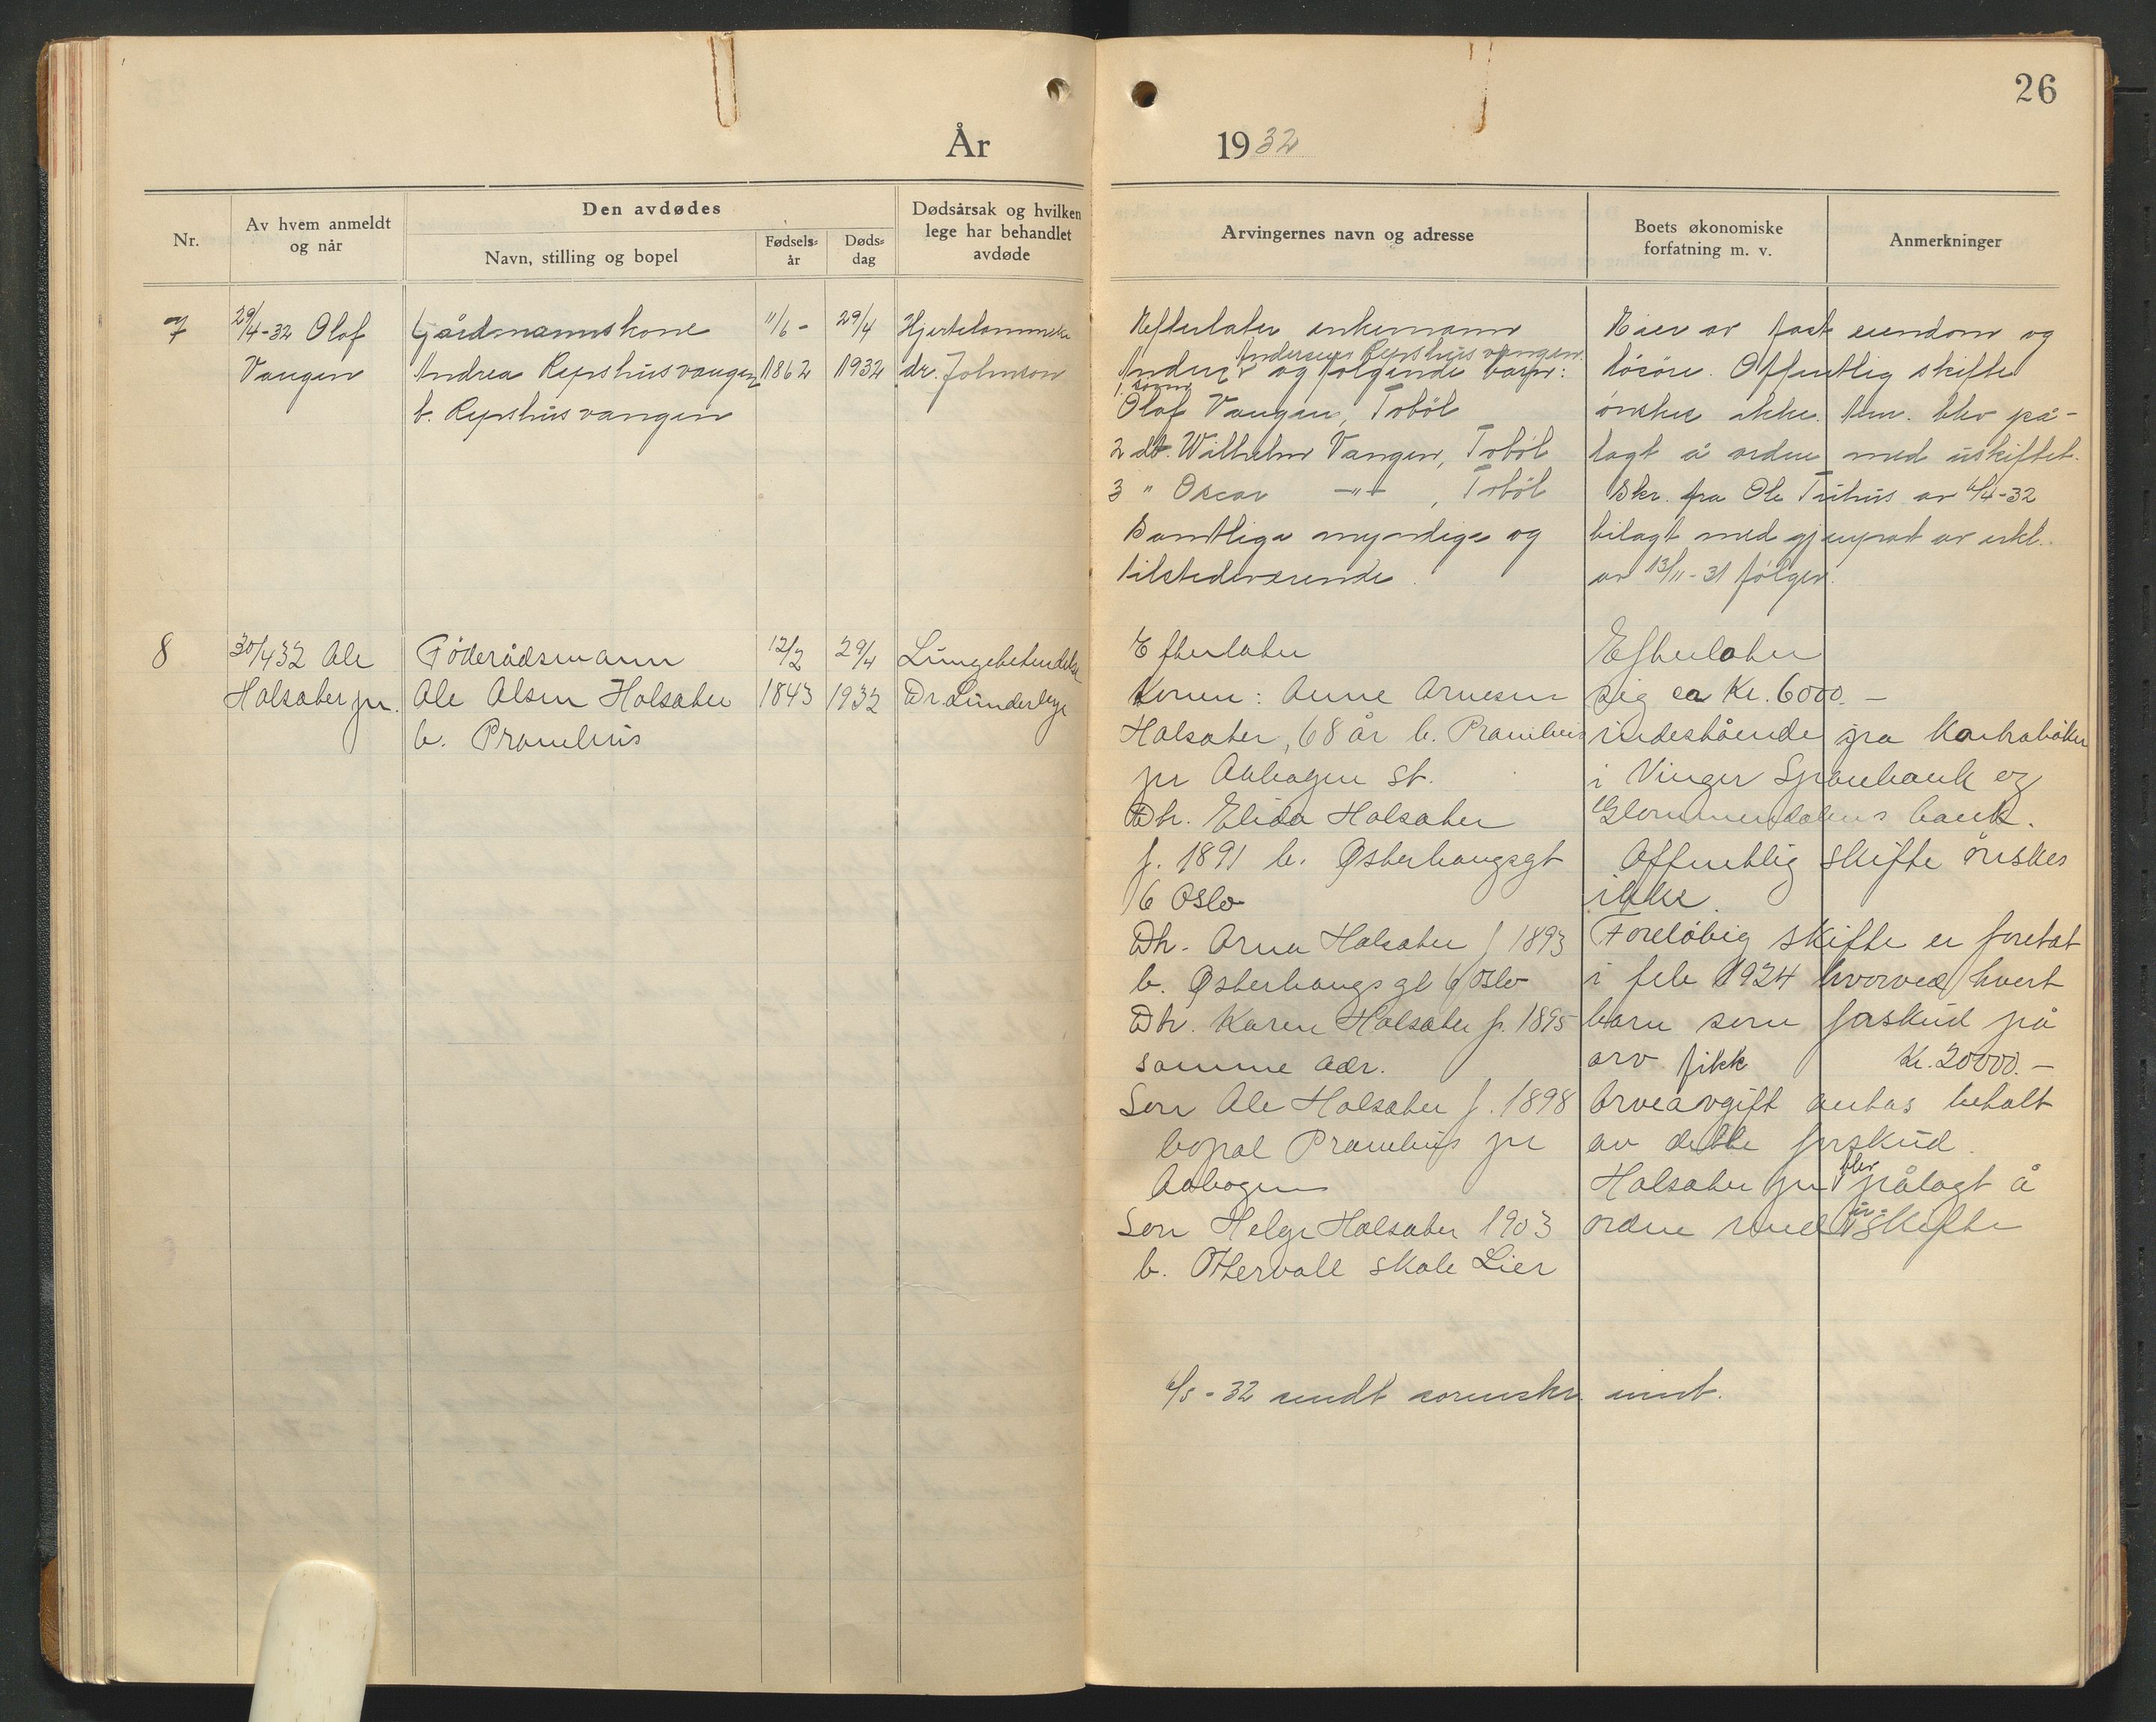 26
År 1932
Nr.
Av hvem anmeldt
og når
Den avdødes
Navn, stilling og bopel
Fødsels-
år
Døds-
dag
Dødsårsak og hvilken
lege har behandlet
avdøde
Arvingernes navn og adresse
Boets økonomiske
forfatning m. v.
Anmerkninger
7
29/4-32 Olaf
Vangen
Gårdmannskone
Andrea Repshusvangen
b. Repshusvangen
11/6-
1862
29/4
1932
Hjertelammelse
dr. Johnson
Efterlater enkemann
Andersen Repshusvangen
Anders og følgende barn:
1. sønn
Olaf Vangen, Tobøl
2 dt. Wilhelm Vangen, Tobøl
3 " Oscar —"— , Tobøl
Samtlige myndige og
tilstedeværende.
Eier av fast eiendom og
løsøre. Offentlig skifte
ønskes ikke. Anm. blev på-
lagt å ordne med uskiftet.
Skr. fra Ole av 6/4-32
bilagt med gjenpart av erkl.
av 13/11-31 følger.
8
30/4 32 Ole
Holsæter jr.
Föderådsmann
Ole Olsen Holsæter
b. Pramhus
12/2
1843
29/4
1932
Lungebetendelse
Dr. Lunderbye
Efterlater
Konen: Anne Arnesen
Holsæter, 68 år b. Pramhus
pr Aabogen st.
Dtr. Elida Holsæter
f. 1891 b. Østerhaugsgt
6 Oslo
Dtr. Arna Holsæter f 1893
b. Østerhaugsgt 6 Oslo
Dtr. Karen Holsæter f. 1895
samme adr.
Sön Ole Holsæter f. 1898
bopæl Pramhus pr
Aabogen
Sön Helge Holsæter 1903
b. skole Lier
Efterlater
sig ca Kr. 6000.—
indestående på kontrabøker
i Vinger Sparebank og
Glommendalens bank.
Offentlig skifte önskes
ikke.
Foreløbig skifte er foretat
i feb 1924 hvorved hvert
barn som forskud på
arv fikk Kr. 20000.—
Arveavgift antas betalt
av dette forskud.
Holsæter jr blev pålagt å
ordne med uskifte
6/5-32 sendt sorenskr. innb.